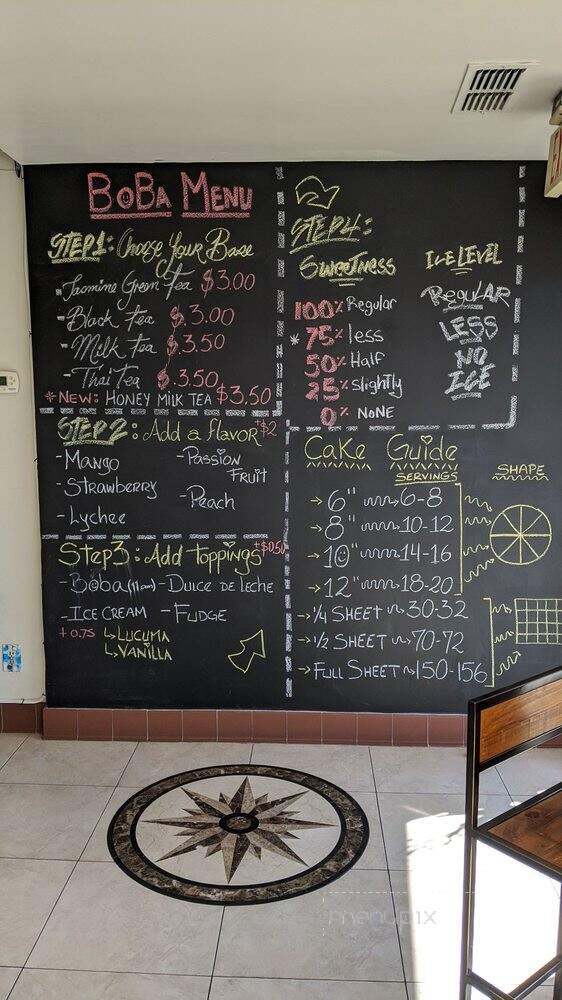 BOBA MENU
STEP1: Choose Your Base
- Jasmine Green Tea $3.00
- Black Tea $.3.00
- Milk Tea $.3.50
- Thai Tea $.3.50
*NEW: HONEY MILK TEA $3.50
STEP2: Add a flavor +$2
- Mango
- Strawberry
- Lychee
- Passion Fruit
- Peach
Step3: Add Toppings +$0.50
- Boba
- DULCE DE LECHE
- ICE CREAM
- FUDGE
+0.75
LUCUMA
VANILLA
STEP4:
SWEETNESS
100% Regular
* 75% less
50% Half
25% Slightly
0% NONE
ICE LEVEL
REGULAR
LESS
NO
ICE
Cake Guide
SERVINGS
SHAPE
6" 6-8
8" 10-12
10" 14-16
12" 18-20
1/4 SHEET 30-32
1/2 SHEET 70-72
FULL SHEET 150-156
menupix